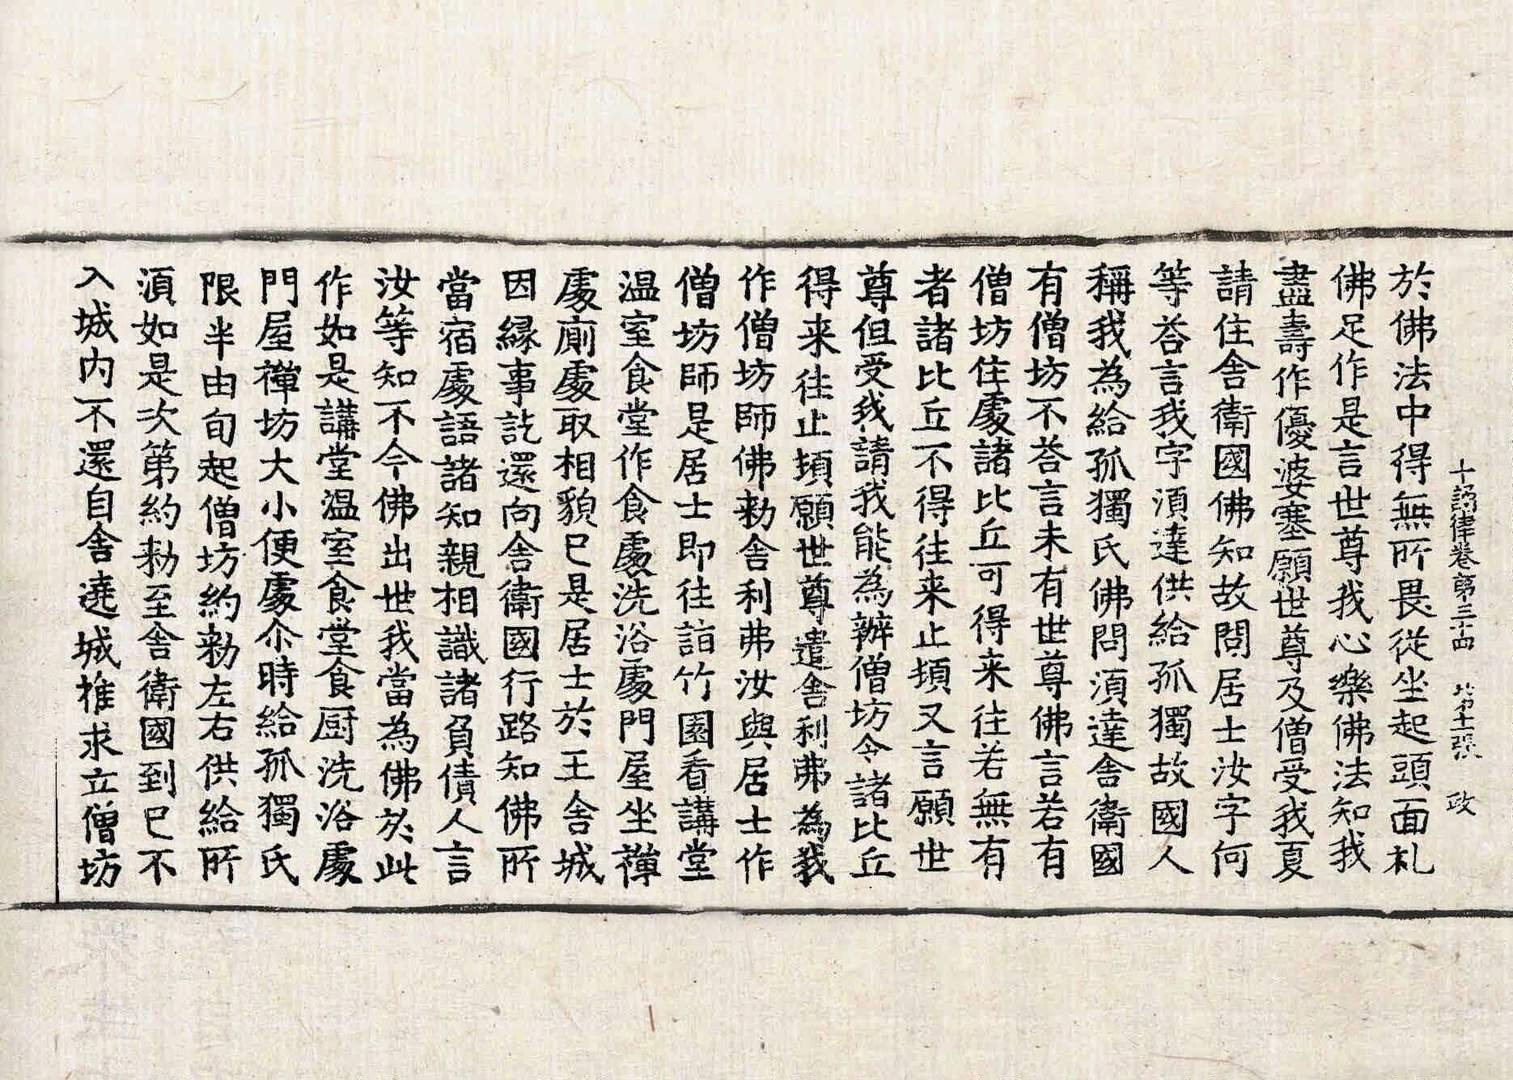 十誦律卷第三十四 第十二張 政
於佛法中得無所畏從坐起頭面礼
佛足作是言世尊我心樂佛法知我
盡壽作優婆塞願世尊及僧受我夏
請住舍衛國佛知故問居士汝字何
等荅言我字湏達供給孤獨故國人
稱我為給孤獨氏佛問湏達舍衛國
有僧坊不荅言未有世尊佛言若有
僧坊住處諸比丘可得来往若無有
者諸比丘不得往来止頓又言願世
尊但受我請我能為辦僧坊令諸比丘
得来往止頓願世尊遣舍利弗為我
作僧坊師佛勑舍利弗汝與居士作
僧坊師是居士即往詣竹園看講堂
温室食堂作食處洗浴處門屋坐禪
處廁處取相貌已是居士於王舍城
因緣事訖還向舍衛國行路知佛所
當宿處語諸知親相識諸負債人言
汝等知不今佛出世我當為佛於此
作如是講堂温室食堂食厨洗浴處
門屋禪坊大小便處尒時給孤獨氏
限半由旬起僧坊約勑左右供給所
湏如是次第約勑至舍衛國到已不
入城內不還自舍遶城推求立僧坊